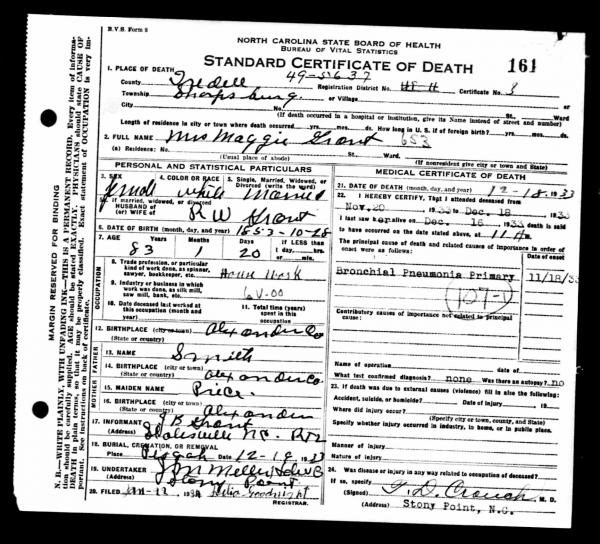 R.V.S. Form 8
NORTH CAROLINA STATE BOARD OF HEALTH
BUREAU OF VITAL STATISTICS
STANDARD CERTIFICATE OF DEATH 161
1. PLACE OF DEATH 49-5637
County Iredell Registration District No. Certificate No. 8
Township Sharpsburg. or Village
City No. St. Ward
(If death occurred in a hospital or institution, give its Name instead of street and number)
Length of residence in city or town where death occurred yrs. mos. ds. How long in U. S. if of foreign birth? yrs. mos. ds.
2. FULL NAME Mrs Maggie Grant 653
(a) Residence: No. St. Ward
(Usual place of abode) (If nonresident give city or town and State)
PERSONAL AND STATISTICAL PARTICULARS
3. SEX 4. COLOR OR RACE 5. Single, Married, Widowed, or Divorced (write the word)
Female white Married
If married, widowed, or divorced
HUSBAND of
(or) WIFE of R W Grant
6. DATE OF BIRTH (month, day, and year) 1853-10-28
7. AGE Years Months Days If LESS than
83 1 20 1 day, hrs.
or min.
OCCUPATION
8. Trade, profession, or particular kind of work done, as spinner, sawyer, bookkeeper, etc. House Work
9. Industry or business in which work was done, as silk mill, saw mill, bank, etc. 6V-00
10. Date deceased last worked at this occupation (month and year)
11. Total time (years) spent in this occupation
12. BIRTHPLACE (city or town) Alexander Co
(State or country)
FATHER
13. NAME Smith
14. BIRTHPLACE (city or town) Alexander Co
(State or country)
MOTHER
15. MAIDEN NAME Price.
16. BIRTHPLACE (city or town) Alexander
(State or country)
17. INFORMANT J B Grant
(Address) Statesville N.C. R
18. BURIAL, CREMATION, OR REMOVAL
Place Pisgah Date 12-19 1933
19. UNDERTAKER
(Address) Stony Point
20. FILED Jan-12 1934 Goodnight
REGISTRAR.
MEDICAL CERTIFICATE OF DEATH
21. DATE OF DEATH (month, day, and year) 12-18 1933
22. I HEREBY CERTIFY, That I attended deceased from
Nov. 20 1933 to Dec. 18 1933
I last saw her alive on Dec. 18 1933 death is said
to have occurred on the date stated above, at 11 A m.
The principal cause of death and related causes of importance in order of onset were as follows:
Date of onset
Bronchial Pneumonia Primary 11/18/33
Contributory causes of importance not related to principal cause:
Name of operation Date of
What test confirmed diagnosis? none Was there an autopsy? no
23. If death was due to external causes (violence) fill in also the following:
Accident, suicide, or homicide? Date of injury 19
Where did injury occur?
(Specify city or town, county, and State)
Specify whether injury occurred in industry, in home, or in public place.
Manner of injury
Nature of injury
24. Was disease or injury in any way related to occupation of deceased?
If so, specify
(Signed) T. D. Crouch M. D.
(Address) Stony Point, N.C.
MARGIN RESERVED FOR BINDING
N. B.—WRITE PLAINLY, WITH UNFADING INK—THIS IS A PERMANENT RECORD. Every item of information should be carefully supplied. AGE should be stated EXACTLY. PHYSICIANS should state CAUSE OF DEATH in plain terms, so that it may be properly classified. Exact statement of OCCUPATION is very important. See instructions on back of certificate.